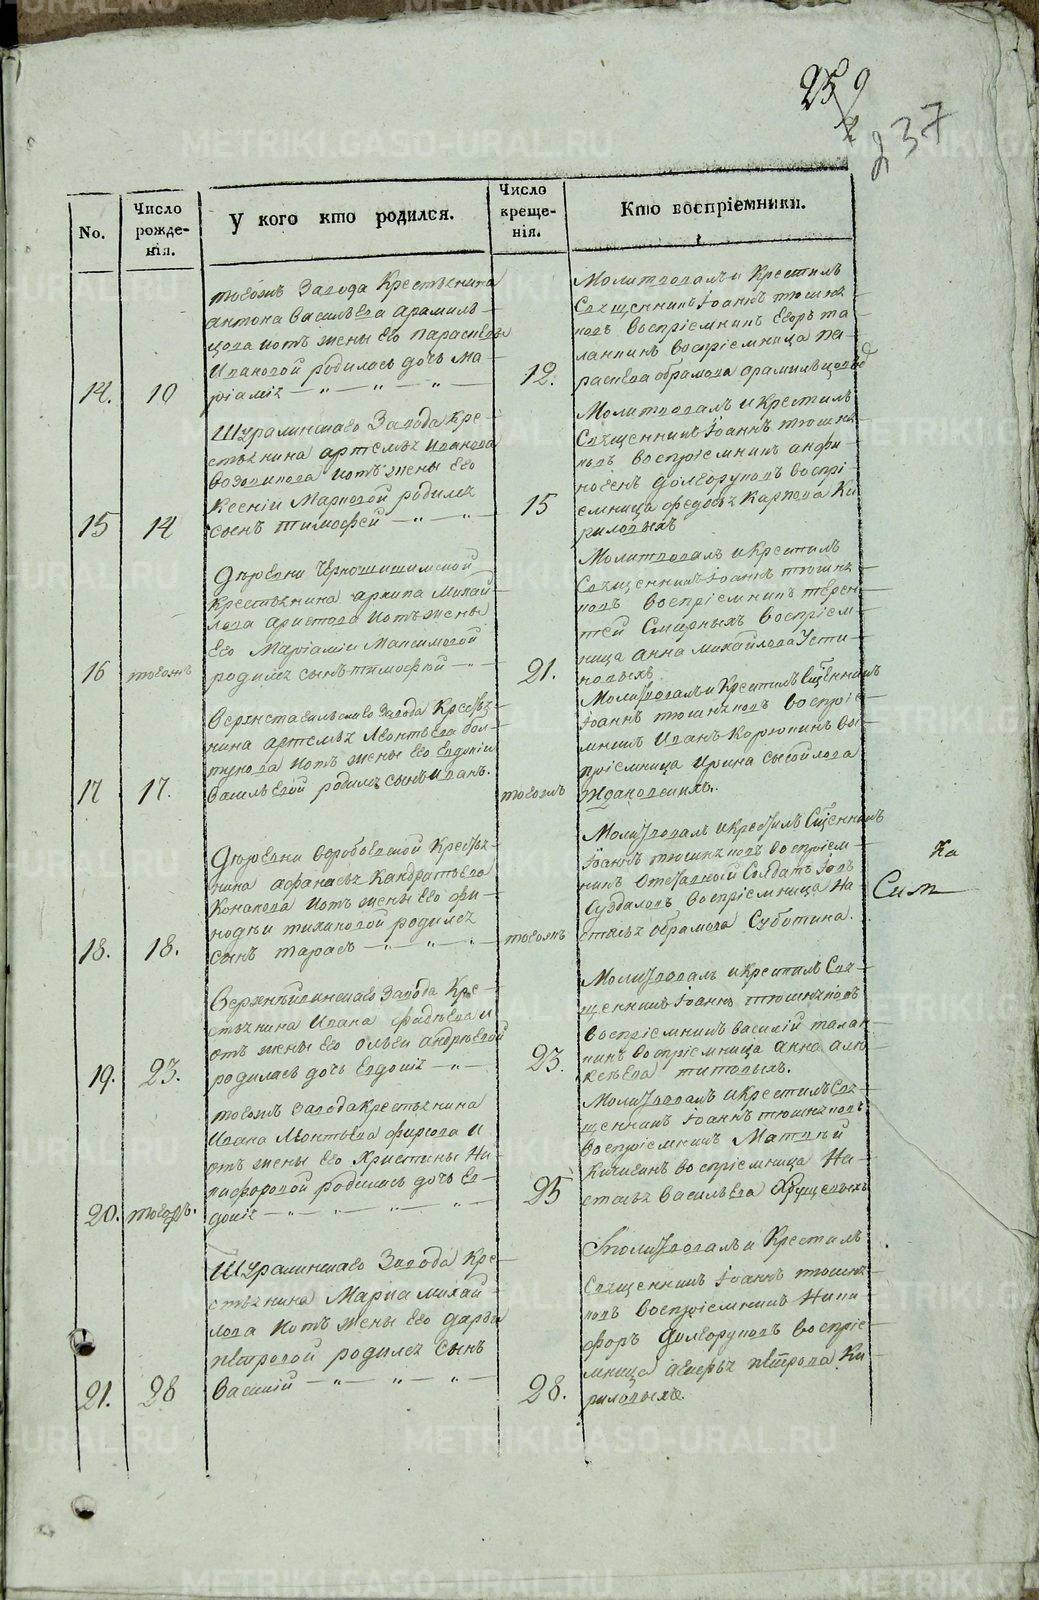 25 9
2
237
No.
Число рожде-
нія.
У кого кто родился.
Число креще-
нія.
Кто воспріемники.
тогожъ Завода Крестьянина
антона Васильева арамиль-
цова иотъ жены его параскевы
Ивановой родилась дочь Ма-
14. 10 ріамія — „ — „ — „ —
12.
Молитвовалъ и Крестилъ
Священникъ Іоаннъ тюшня-
ковъ воспріемникъ Егоръ та-
ланкинъ воспріемница па-
раскева абрамова арамильцова
Шуралинскаго Завода Кре-
стьянина артемья Иванова
иотъ жены его
Ксеніи Марковой родился
15 14 сынъ тимофей — „ — „ —
15
Молитвовалъ и крестилъ
Священникъ Іоаннъ тюшня-
ковъ воспріемникъ анфи-
ногенъ долгоруковъ воспрі-
емница федосья Карпова Ки-
риловыхъ
Деревни Черношишимской
Крестьянина архипа Михай-
лова аристова иотъ жены
его Маріаміи Максимовой
16 тогожъ родился сынъ тимофей — „ —
21.
Молитвовалъ и крестилъ
Священникъ Іоаннъ тюшня-
ковъ воспріемникъ терен-
тей Смирныхъ воспріем-
ница анна михайлова Усти-
новыхъ
Верхнетагильскаго Завода Крестья-
нина артемья Леонтьева
иотъ жены его Евдокіи
17 17. Васильевой родился сынъ иванъ.
тогожъ
Молитвовалъ и Крестилъ Сщенникъ
Іоаннъ тюшняковъ воспріе-
мникъ Иванъ Корюкинъ во-
пріемница Ирина
Ждановскихъ.
Деревни Воробьевской Крестья-
нина афанасья Кандратьева
Конакова иотъ жены его
тихановой родился
18. 18. сынъ тарасъ — „ — „ —
тогожъ
Молитвовалъ и Крестилъ Сщенникъ
Іоаннъ тюшняковъ воспріем-
никъ отставной Солдатъ
Суздаловъ воспріемница На-
стасья абрамова Суботина.
Верхнейвинскаго Завода Кре-
стьянина Ивана и
отъ жены его ольги андреевой
19. 23. родилась дочь Евдокія — „ —
23.
Молитвовалъ и крестилъ Свя-
щенникъ Іоаннъ тюшняковъ
воспріемникъ василій талан-
кинъ воспріемница анна але-
ксеева титовыхъ.
тогожъ Завода Крестьянина
Ивана Леонтьева фирсова и
отъ жены его Христины Ни-
кифоровой родилась дочь Ев-
20. тогожъ. докія — „ — „ — „ — „ —
25
Молитвовалъ и Крестилъ Свя-
щенникъ Іоаннъ тюшняковъ
воспріемникъ Матвей
Кичигинъ воспріемница На-
стасья Васильева Хрущевыхъ
Ка
Сил
Шуралинскаго Завода Кре-
стьянина Марка михай-
лова иотъ жены его дарьи
петровой родился сынъ
21. 28 Василій — „ — „ — „ —
28.
Молитвовалъ и Крестилъ
Священникъ Іоаннъ тюшня-
ковъ воспріемникъ Ники-
форъ долгоруковъ воспріе-
мница агафья петрова Ки-
риловыхъ.
METRIKI.GASO-URAL.RU